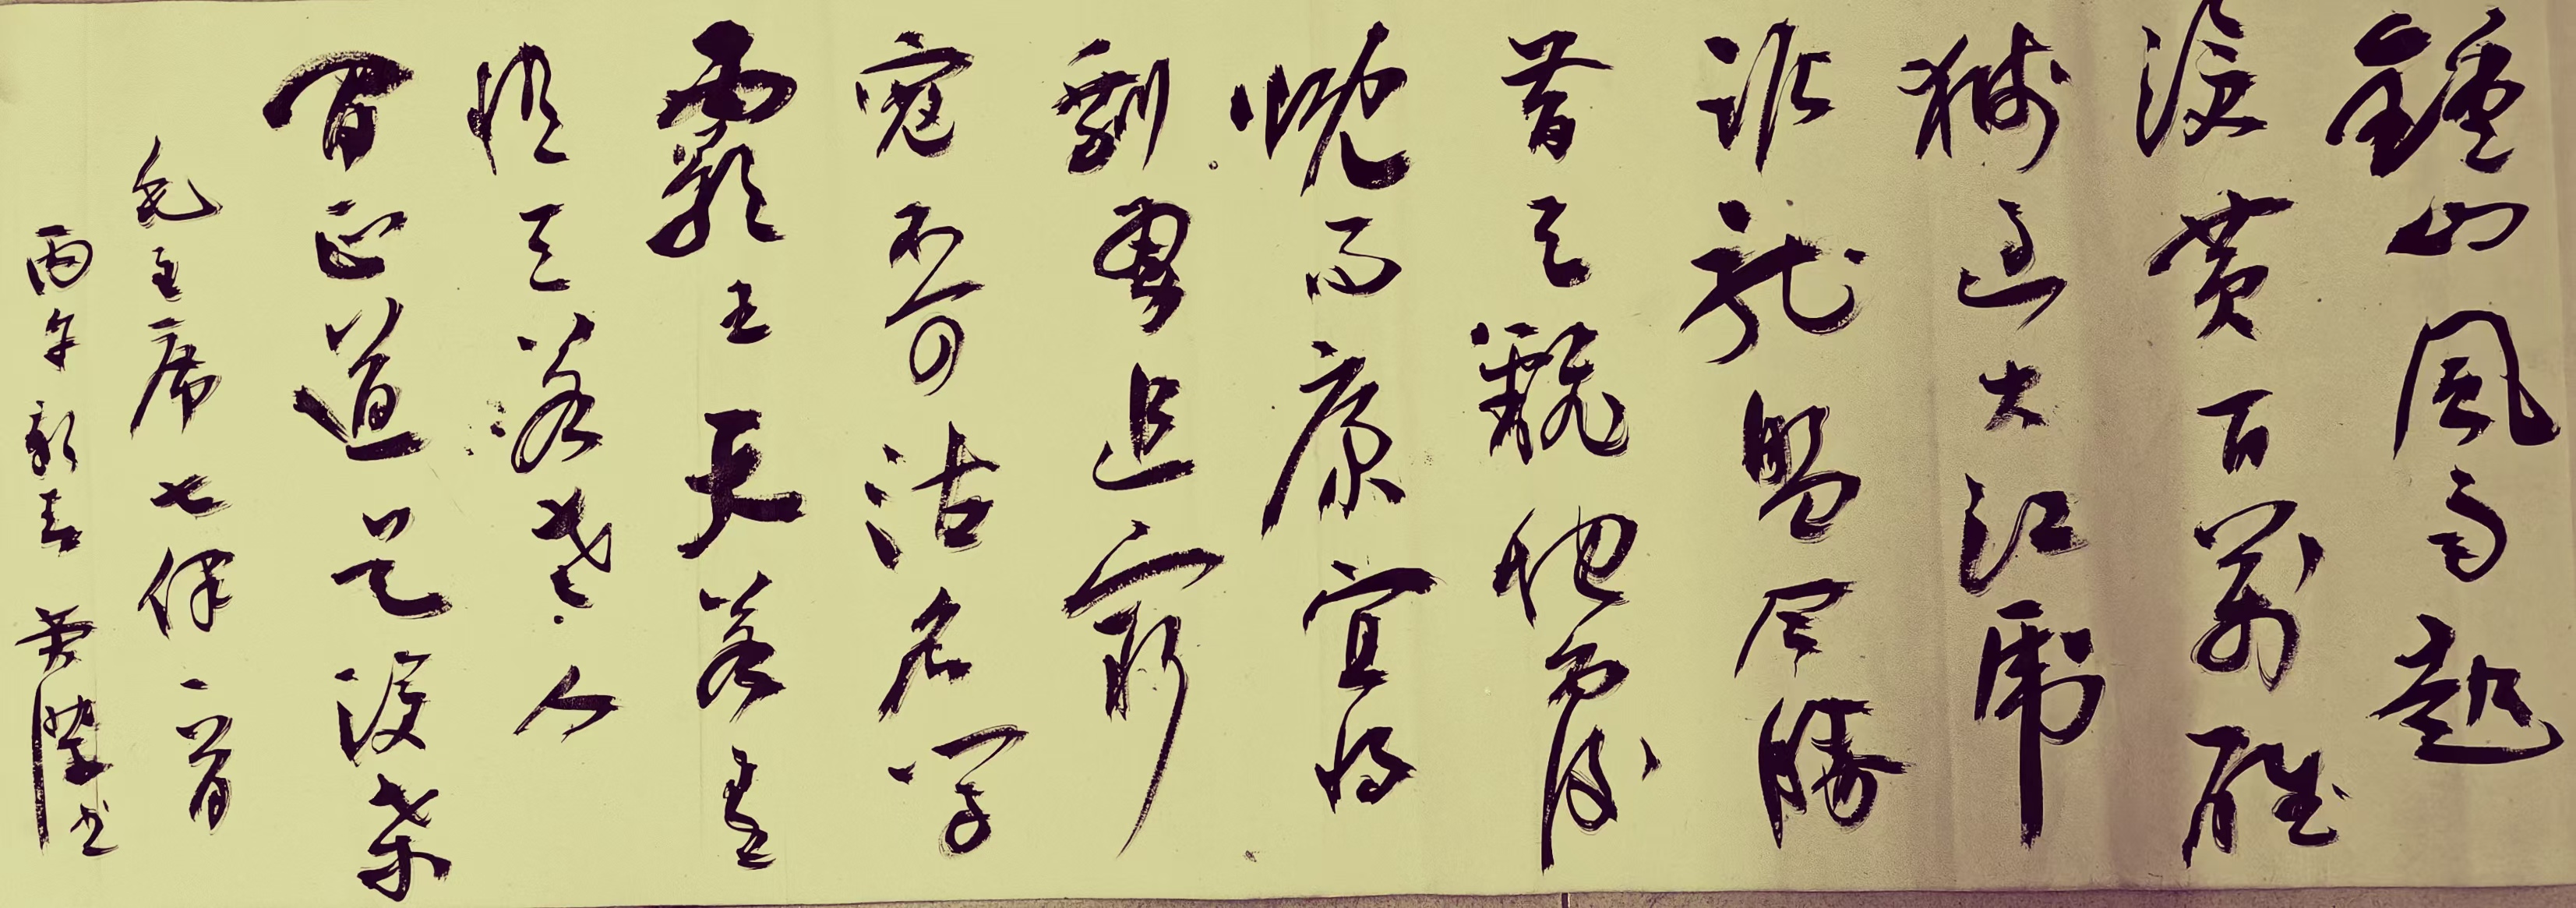 鍾山風雨起
滄黃百萬雄
師過大江虎
踞龍盤今勝
昔天翻地覆
慨而慷宜將
剩勇追窮
寇不可沽名學
霸王天若有
情天若老人
間正道是滄桑
毛主席七律一首
丙午新春 書